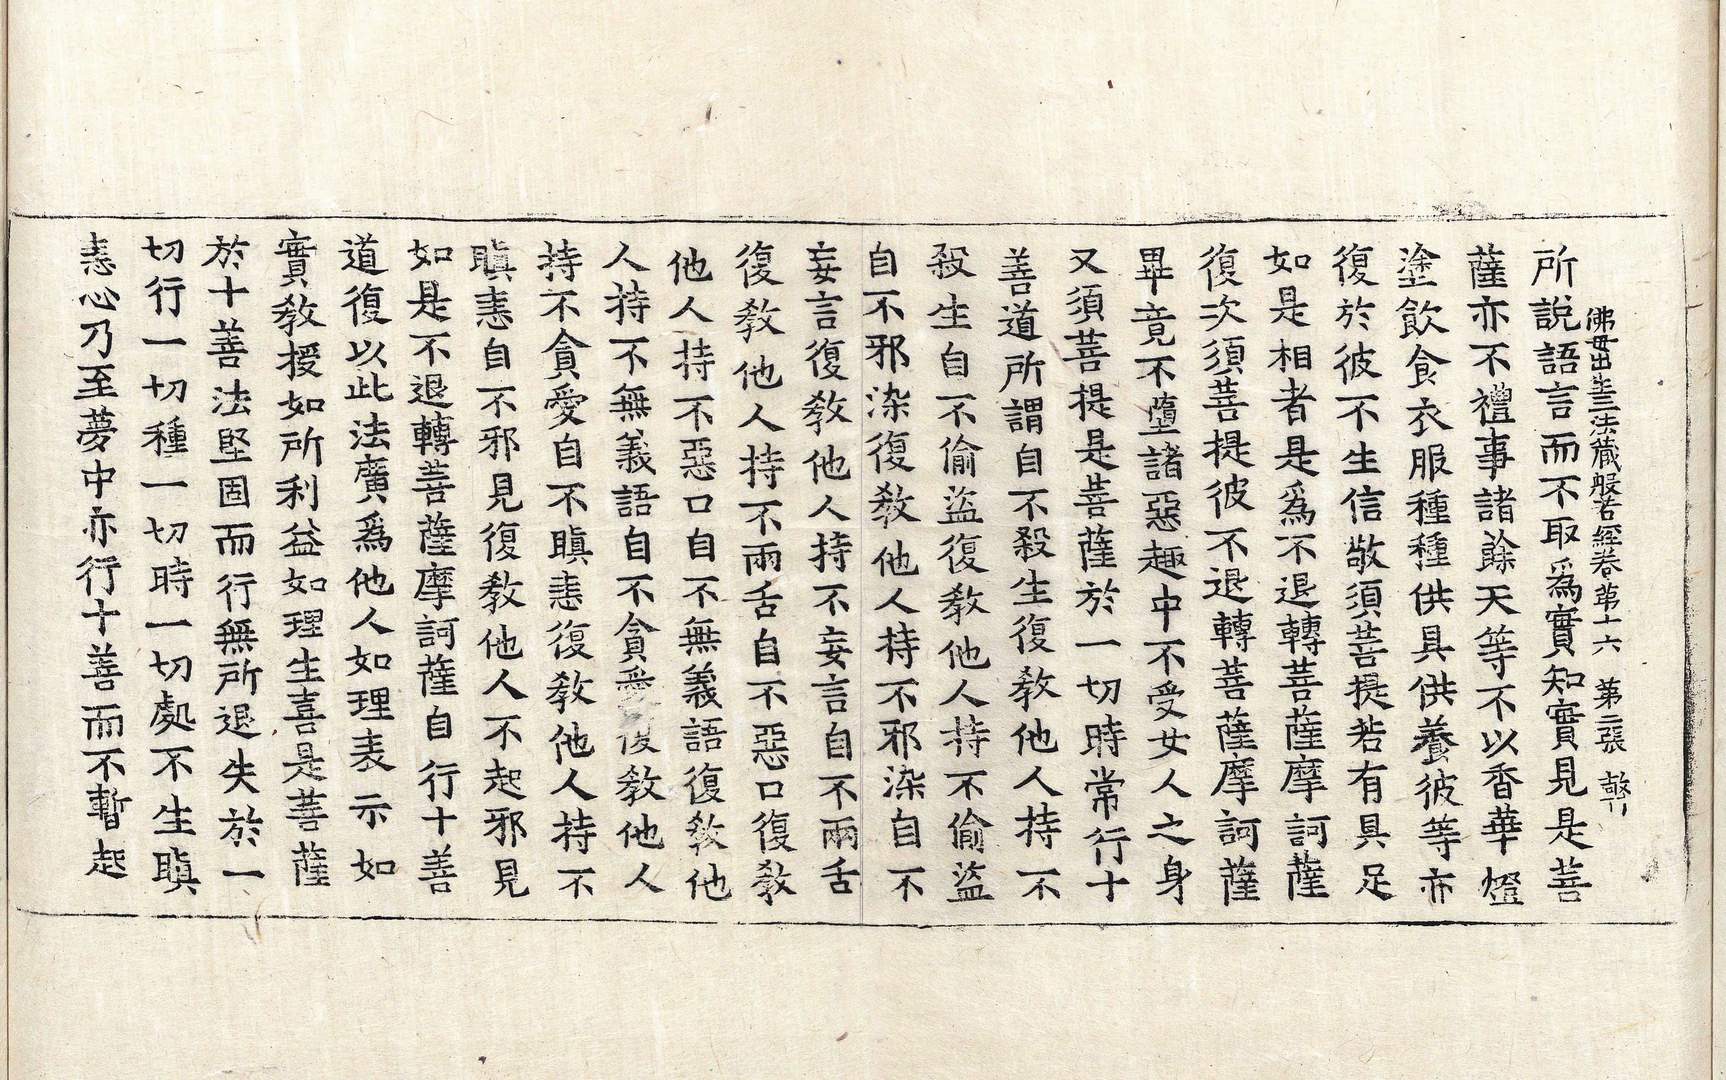 佛母出生三法藏般若經卷第十六 第二張 罄
所說語言而不取爲實知實見是菩
薩亦不禮事諸餘天等不以香華燈
塗飮食衣服種種供具供養彼等亦
復於彼不生信敬須菩提若有具足
如是相者是爲不退轉菩薩摩訶薩
復次須菩提彼不退轉菩薩摩訶薩
畢竟不墮諸惡趣中不受女人之身
又須菩提是菩薩於一切時常行十
善道所謂自不殺生復敎他人持不
殺生自不偷盜復敎他人持不偷盜
自不邪染復敎他人持不邪染自不
妄言復敎他人持不妄言自不兩舌
復敎他人持不兩舌自不惡口復敎
他人持不惡口自不無義語復敎他
人持不無義語自不貪愛復敎他人
持不貪愛自不瞋恚復敎他人持不
瞋恚自不邪見復敎他人不起邪見
如是不退轉菩薩摩訶薩自行十善
道復以此法廣爲他人如理表示如
實敎授如所利益如理生喜是菩薩
於十善法堅固而行無所退失於一
切行一切種一切時一切處不生瞋
恚心乃至夢中亦行十善而不暫起